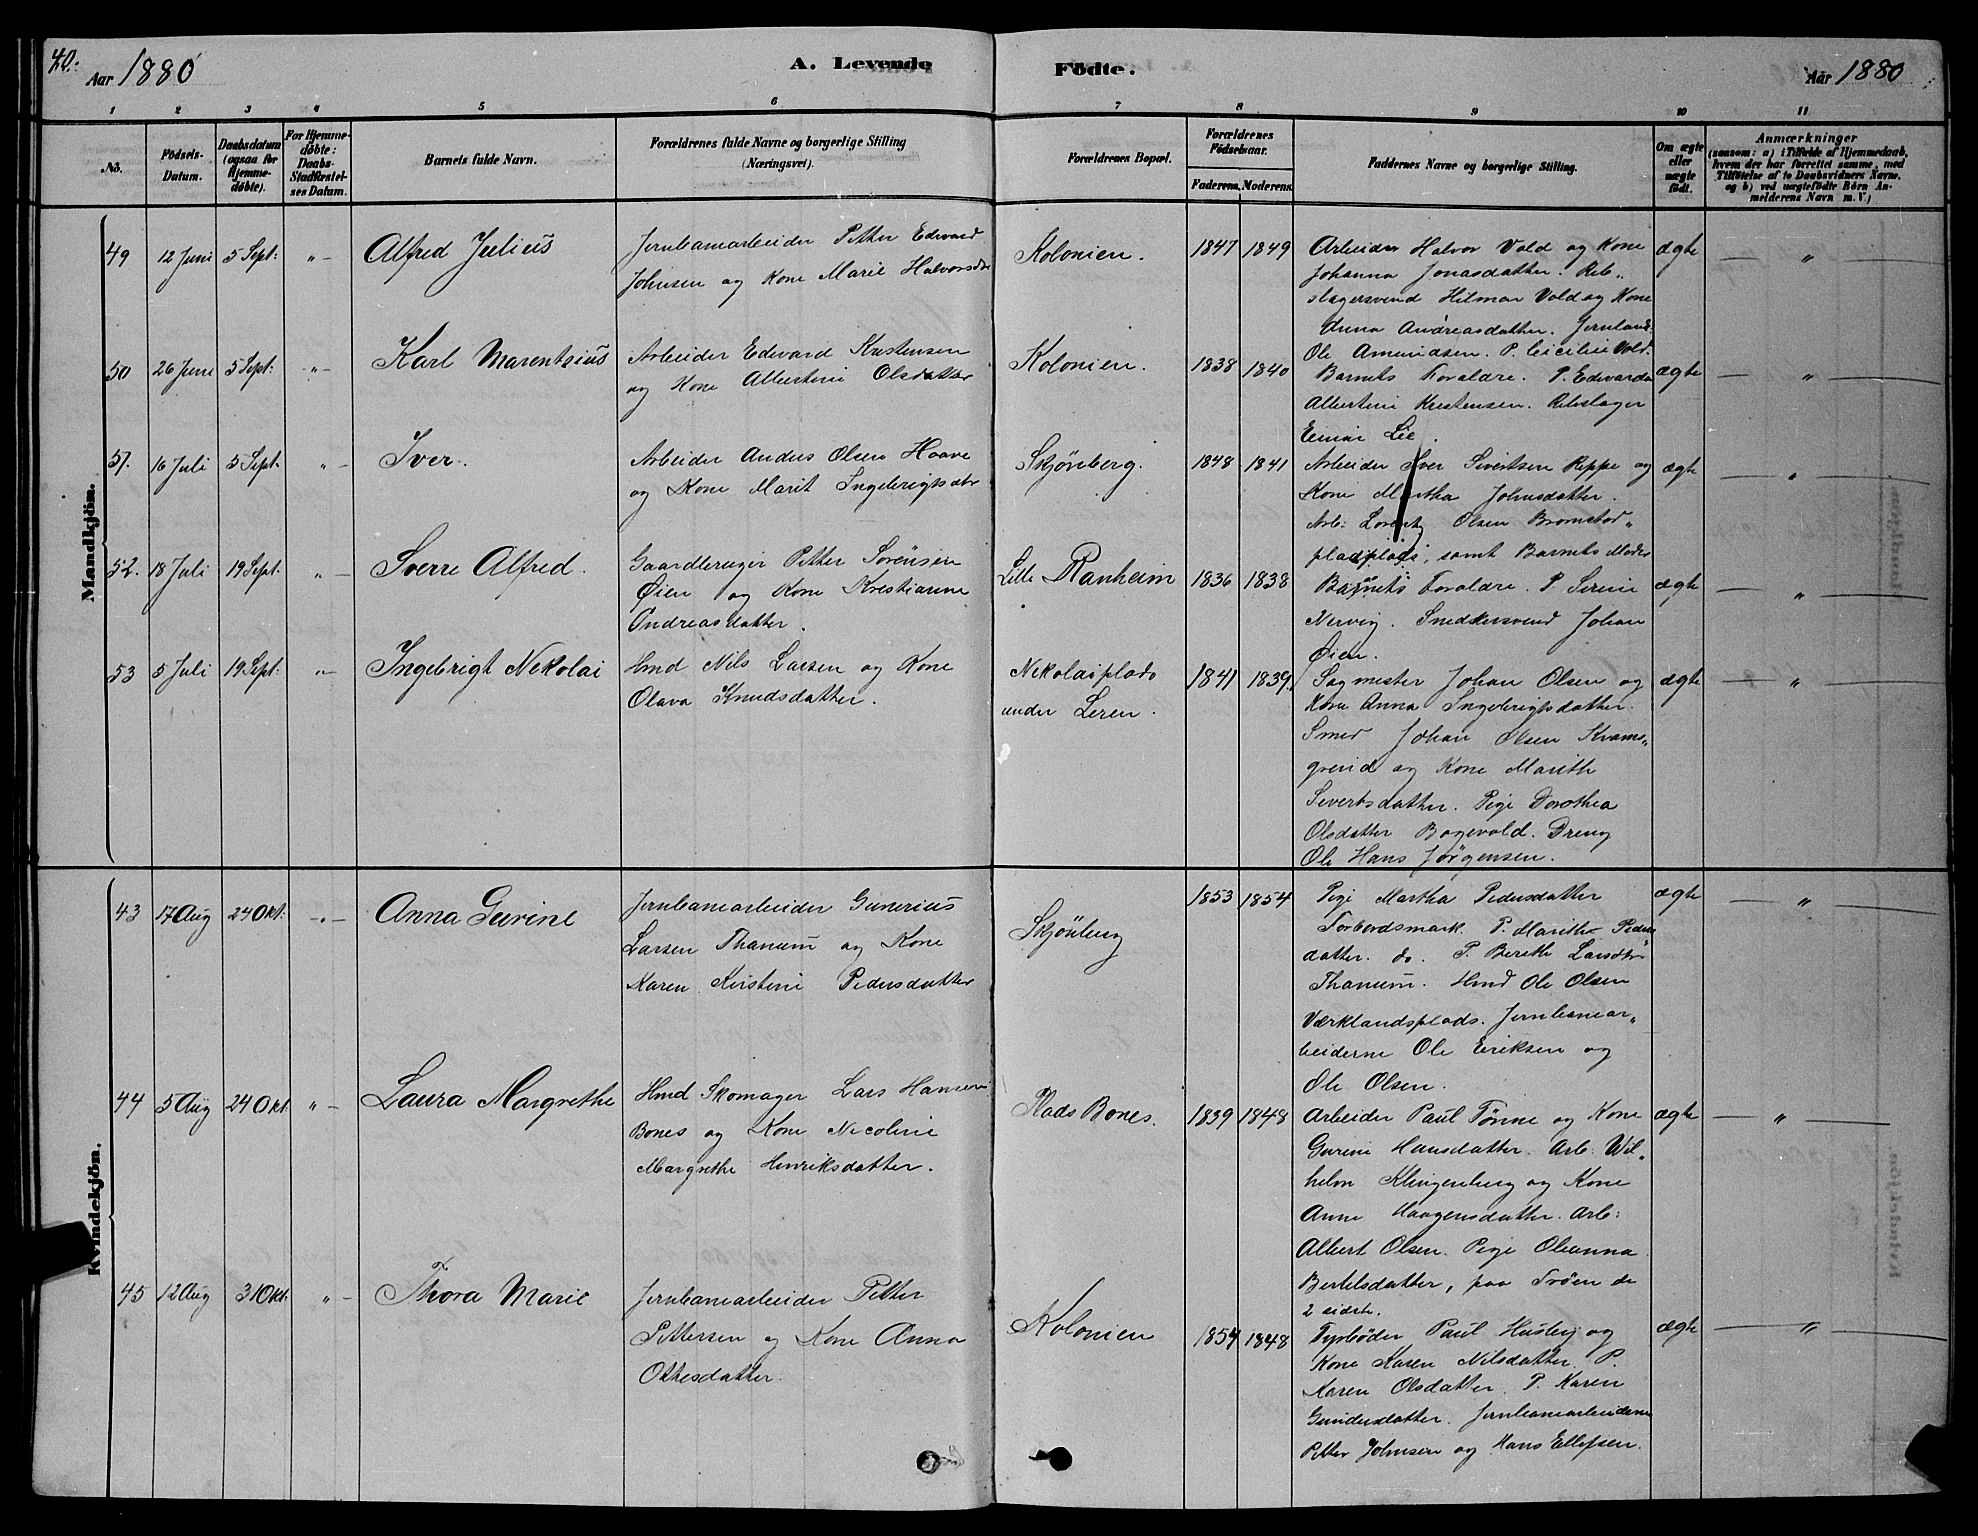 40.
Aar 1880
A. Levende
Födte.
Aar 1880
1 2 3 4 5 6 7 8 9 10 11
No.
Födsels-
Datum.
Daabsdatum
(ogsaa for
Hjemme-
döbte).
For Hjemme-
döbte:
Daabs-
Stadfæstel-
ses Datum.
Barnets fulde Navn.
Forældrenes fulde Navne og borgerlige Stilling
(Næringsvei).
Forældrenes Bopæl.
Forældrenes
Födselsaar.
Faderens. Moderens.
Faddernes Navne og borgerlige Stilling.
Om ægte
eller
uægte
födt.
Anmærkninger
(saasom: a) i Tilfælde af Hjemmedaab,
hvem der har forrettet samme, med
Tilföielse af to Daabsvidners Navne,
og b) ved uægtefödte Börn An-
melderens Navn m. V.)
Mandkjön.
49 12 Juni 5 Sept: " –
Alfred Julius
Jernbanearbeider Petter Edvard
Johnsen og Kone Marie Halvorsdtr
Kolonien.
1847 1849
Arbeider Halvor Vold og Kone
Johanna Jonasdatter. Reb„
slagersvend Hilmar Vold og Kone
Anna Andreasdatter. Jernban
Ole Amundsen. P. Cecilie Vold.
ægte
— " —
50 26 Juni 5 Sept: " –
Karl Marentzius
Arbeider Edvard Kristensen
og Kone Albertine Olsdatter
Kolonien.
1838 1840
Barnets Forældre. P. Edvarda
Albertine Kristensen. Rebslager
Einar Lie.
ægte
— " —
51. 16 Juli 5 Sept. " –
Iver.
Arbeider Anders Olsen Haave
og Kone Marit Ingebrigtsdtr
Skjönberg.
1848 1841
Arbeider Iver Sivertsen Reppe og
Kone Martha Johnsdatter.
Arb: Lorentz Olsen Bromstad„
pladsen, samt Barnets Moder
ægte
— " —
52. 18 Juli 19 Sept: " –
Sverre Alfred.
Gaardbruger Petter Sørensen
Øien og Kone Kristianne
Andreasdatter.
Lille Ranheim
1836 1838
Barnets Forældre. P. Serine
Nervig. Snedkersvend Johan
Øien.
ægte
— " —
53 5 Juli 19 Sept: " –
Ingebrigt Nekolai
Hmd Nils Larsen og Kone
Olava Knudsdatter.
Nekolaiplads
under Leren.
1841 1839.
Sagmester Johan Olsen og
Kone Anna Ingebrigtsdatter.
Smed Johan Olsen Kvams„
grend og Kone Marith
Sivertsdatter. Pige Dorothea
Olsdatter Bogevold. Dreng
Ole Hans Jørgensen.
ægte
— " —
Kvindekjön.
43 17 Aug 24 Okt: – " –
Anna Gurine
Jernbanearbeider Gunerius
Larsen Thanum og Kone
Karen Kirstine Pedersdatter
Skjönberg
1853 1854
Pige Martha Pedersdatter
Torbordsmark. P. Marithe Peders
datter. do. P. Berethe Larsdtr
Thanum. Hmd Ole Olsen
Værklandsplads. Jernbanear„
beiderne Ole Eriksen og
Ole Olsen.
ægte
— " —
44 5 Aug 24 Okt. " –
Laura Margrethe
Hmd Skomager Lars Hansen
Bones og Kone Nicoline
Margrethe Henriksdatter.
Plads Bones.
1839 1848
Arbeider Paul Tönne og Kone
Gurine Hansdatter. Arb. Wil„
helm Klingenberg og Kone
Anne Haagensdatter. Arb:
Albert Olsen. Pige Oleanna
Bertelsdatter, paa Tröen de
2 sidste.
ægte
— " —
45 12 Aug 31 Okt: " –
Thora Marie
Jernbanearbeider Petter
Pettersen og Kone Anna
Ottesdatter.
Kolonien
1854 1848
Fyrbøder Paul Husby og
Kone Karen Nilsdatter. P.
Karen Olsdatter. P. Karen
Gundersdatter. Jernbanearbeiderne
Petter Johnsen og Hans Ellefsen.
ægte
— " —